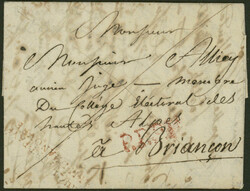 Monsieur
Monsieur
ancien juge membre
Du Collège Electoral des
hautes Alpes
à Briançon